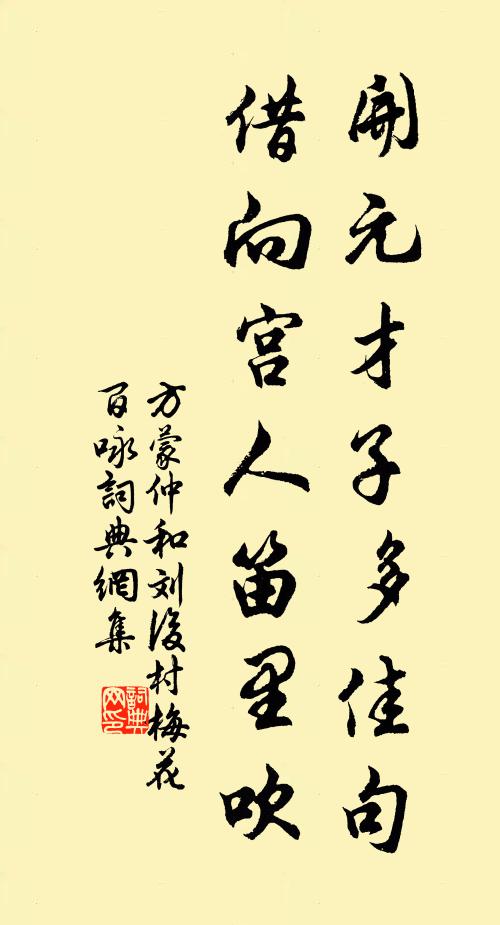 開元才子多佳句
借向宫人笛里吹
方蒙仲和刘後村梅花
百咏詞典網集
詞典网印